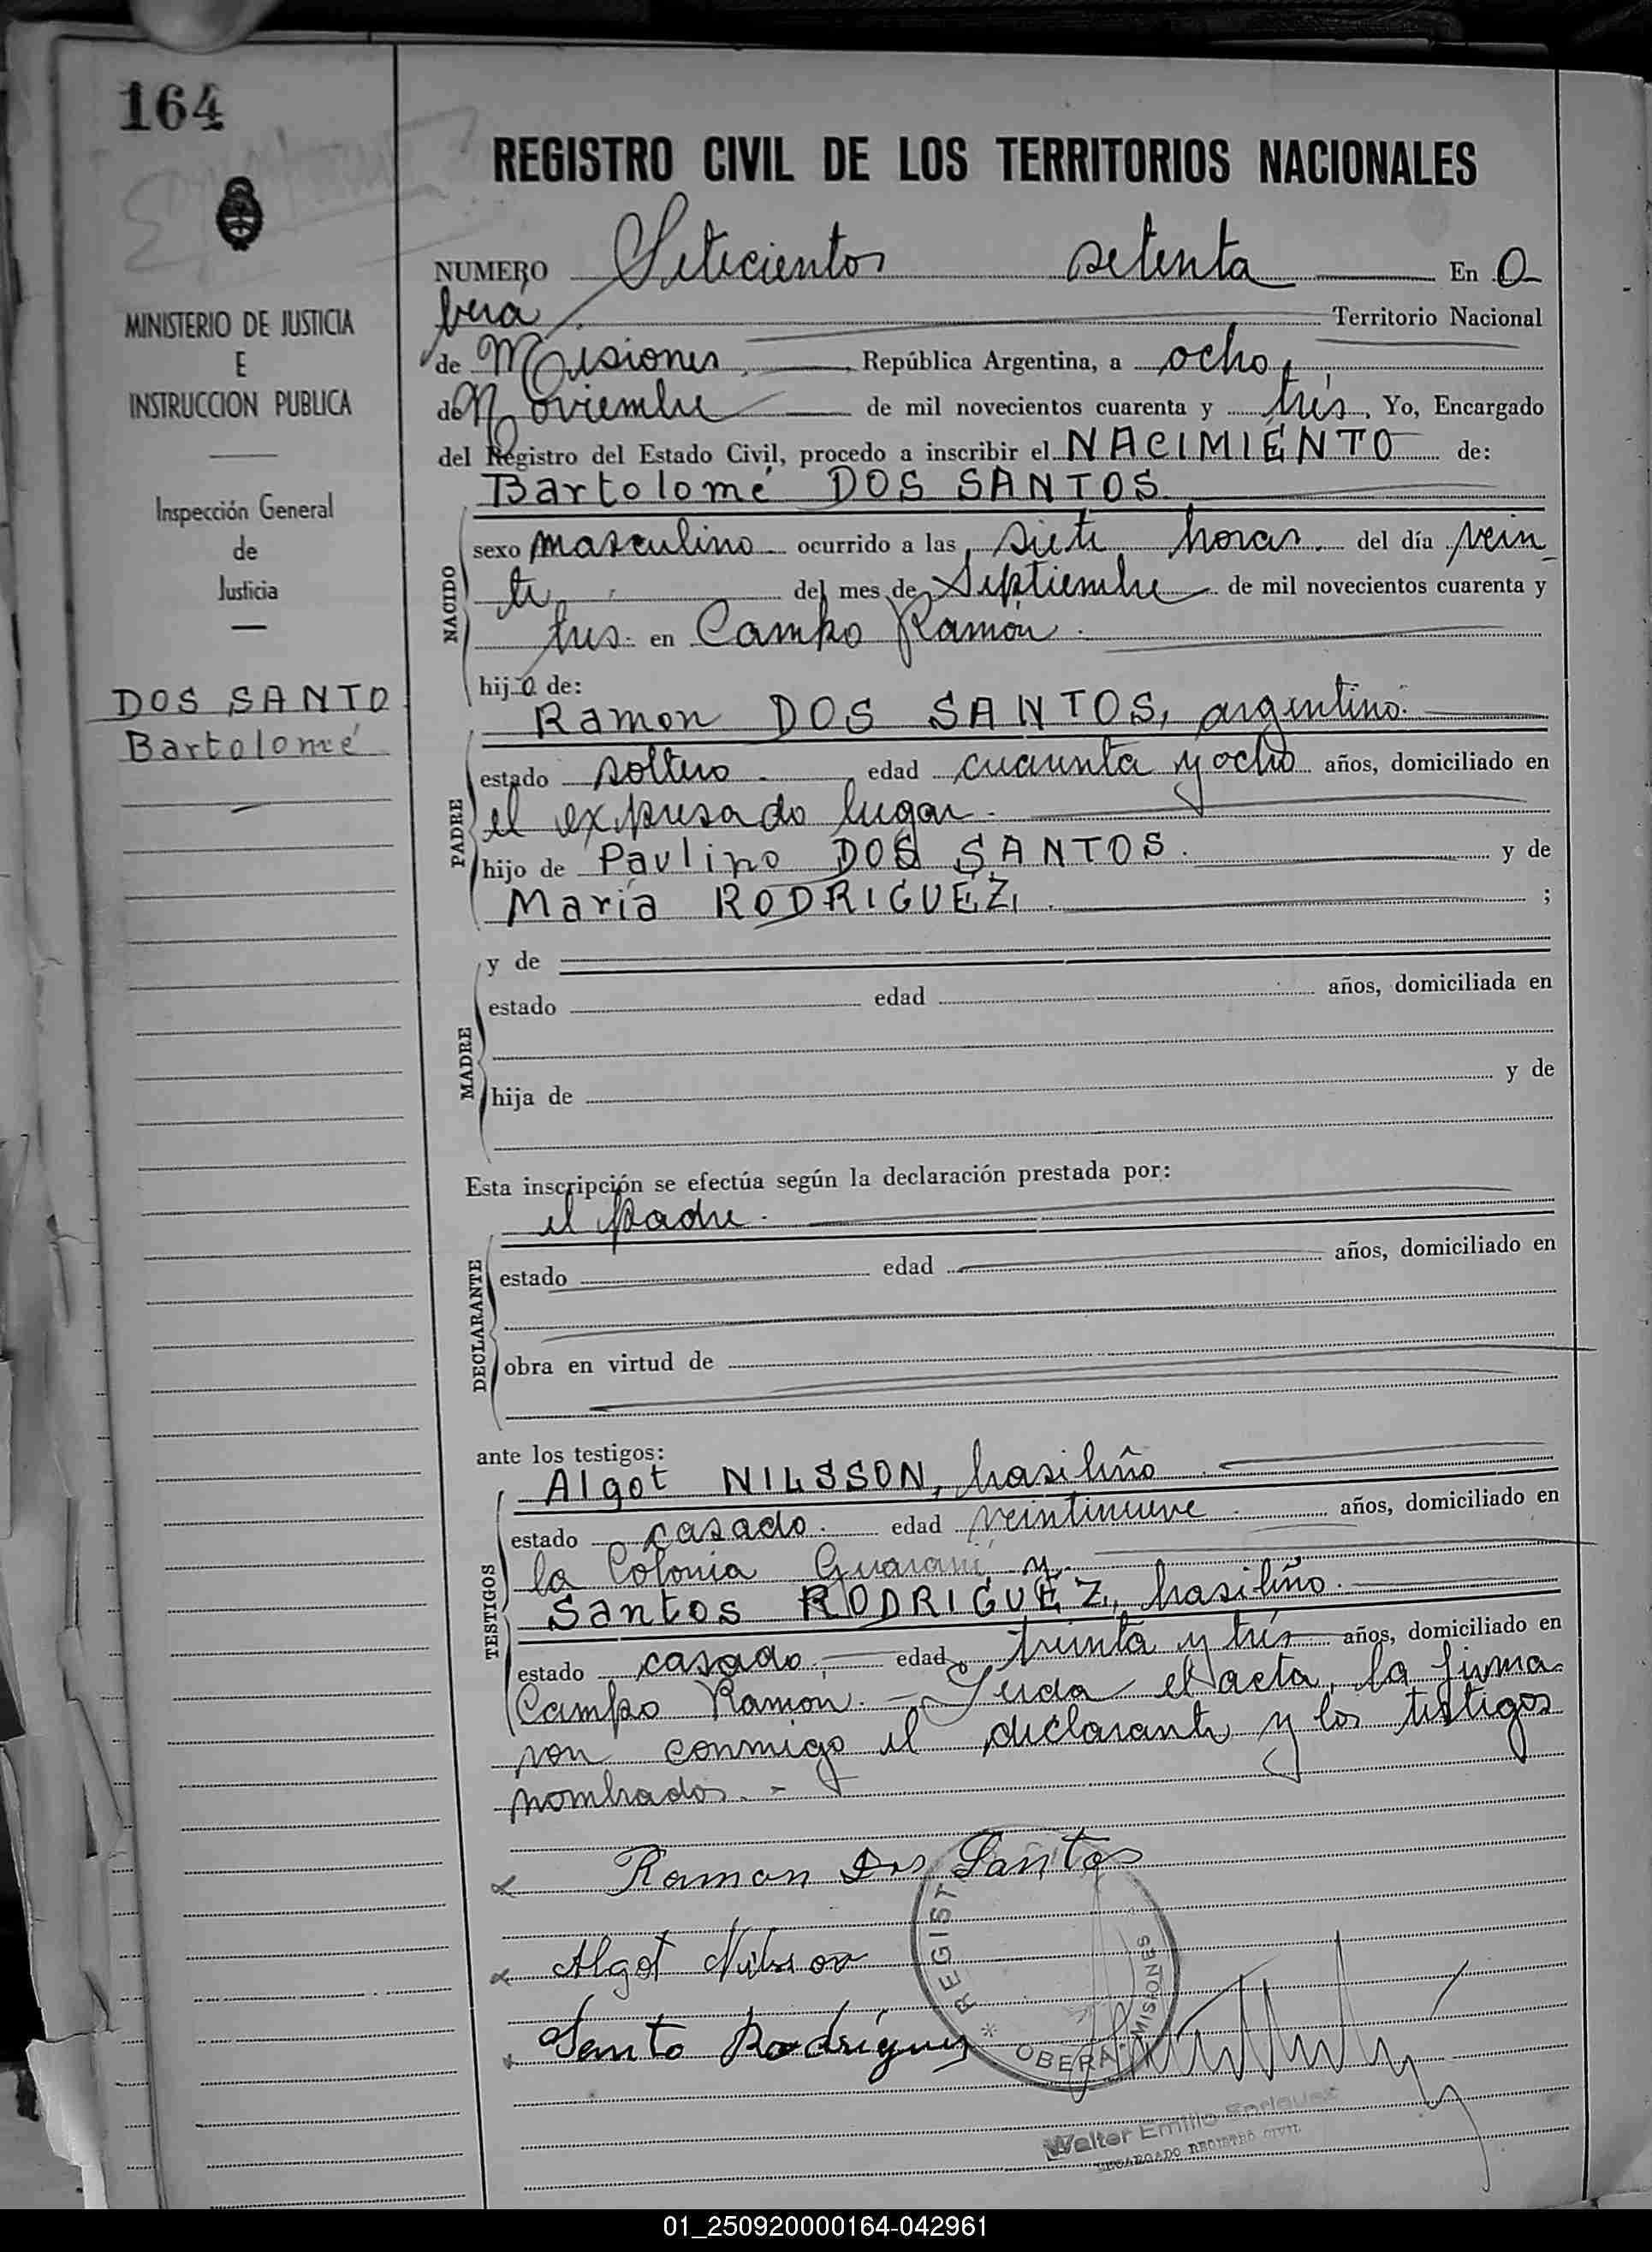 164
MINISTERIO DE JUSTICIA
E
INSTRUCCION PUBLICA
Inspección General
de
Justicia
DOS SANTO
Bartolomé
REGISTRO CIVIL DE LOS TERRITORIOS NACIONALES
NUMERO Setecientos setenta En O
berá Territorio Nacional
de Misiones, República Argentina, a ocho,
de Noviembre de mil novecientos cuarenta y tres, Yo, Encargado
del Registro del Estado Civil, procedo a inscribir el NACIMIENTO de:
Bartolomé DOS SANTOS
NACIDO
sexo masculino ocurrido a las siete horas. del día vein
te del mes de Septiembre de mil novecientos cuarenta y
tres. en Campo Ramón.
hijo de:
Ramon DOS SANTOS, argentino.
PADRE
estado soltero. edad cuarenta y ocho años, domiciliado en
el expresado lugar.
hijo de Paulino DOS SANTOS. y de
María RODRIGUEZ. ;
y de
MADRE
estado edad años, domiciliada en
hija de y de
Esta inscripción se efectúa según la declaración prestada por:
el padre.
DECLARANTE
estado edad años, domiciliado en
obra en virtud de
ante los testigos:
Algot NILSSON, brasileño
TESTIGOS
estado casado. edad veintinueve. años, domiciliado en
la Colonia Guaraní y
Santos RODRIGUEZ, brasileño.
estado casado, edad treinta y tres años, domiciliado en
Campo Ramón. - Leida el acta, la firma
ron conmigo el declarante y los testigos
nombrados. -
x Ramon Dos Santos
x Algot Nilsson
x Santo Rodriguez
REGIST
OBERA - MISIONES
Walter Emilio Enriquez
ENCARGADO REGISTRO CIVIL
01_250920000164-042961